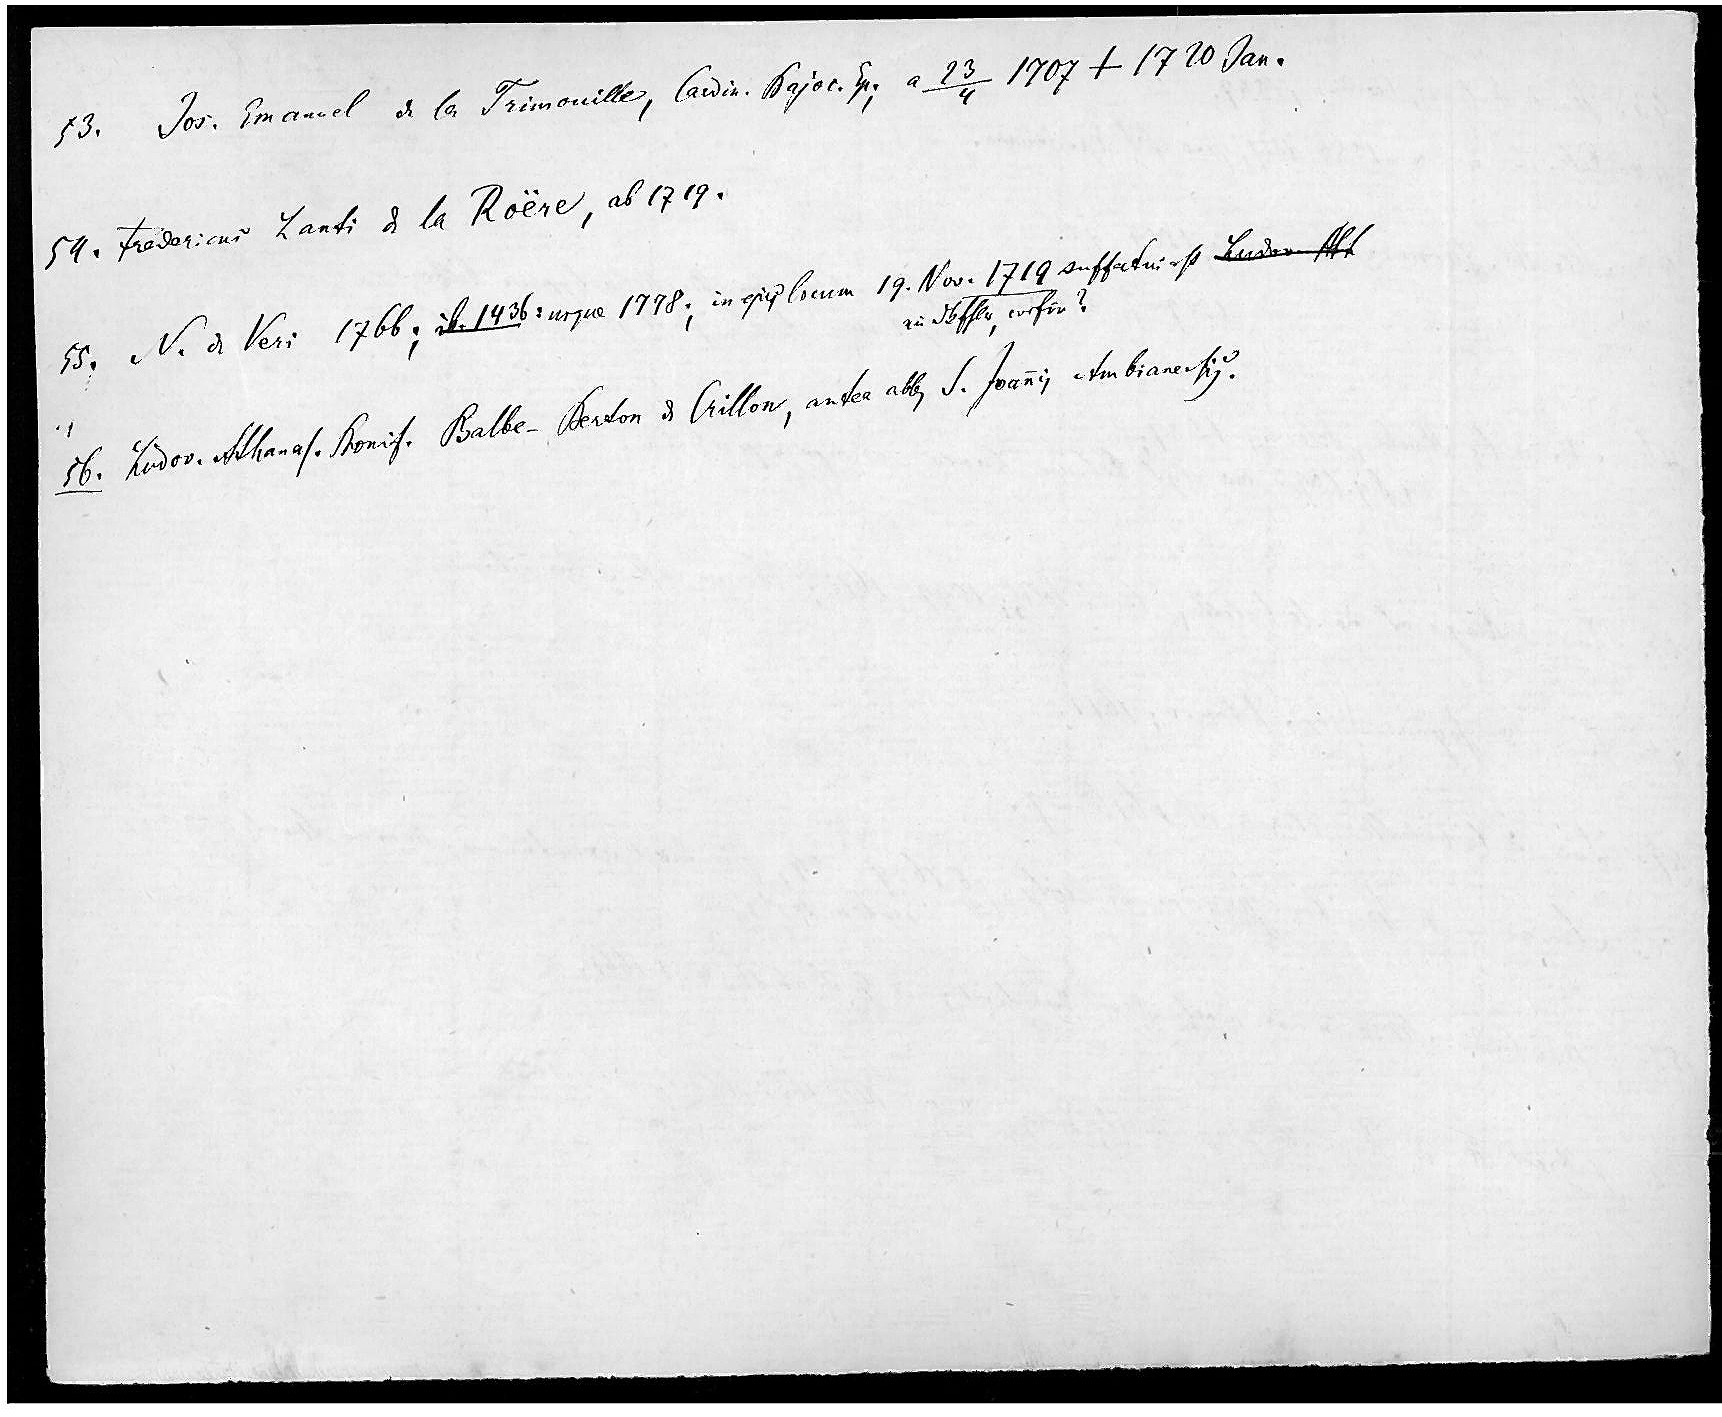 53. Jos. Emanuel de la Trimouille, Cardin. Bajoc. Ep., a 23/4 1707 + 1720 Jan.
54. Fredericus Lanti de la Roëre, ab 1719.
55. N. de Veri 1766; ib. 1436: usque 1778; in ejus locum 19. Nov. 1719 suffectus est
56. Ludov. Athanas. Bonif. Balbe-Berton de Crillon, antea abb. S. Joannis Ambianensis.